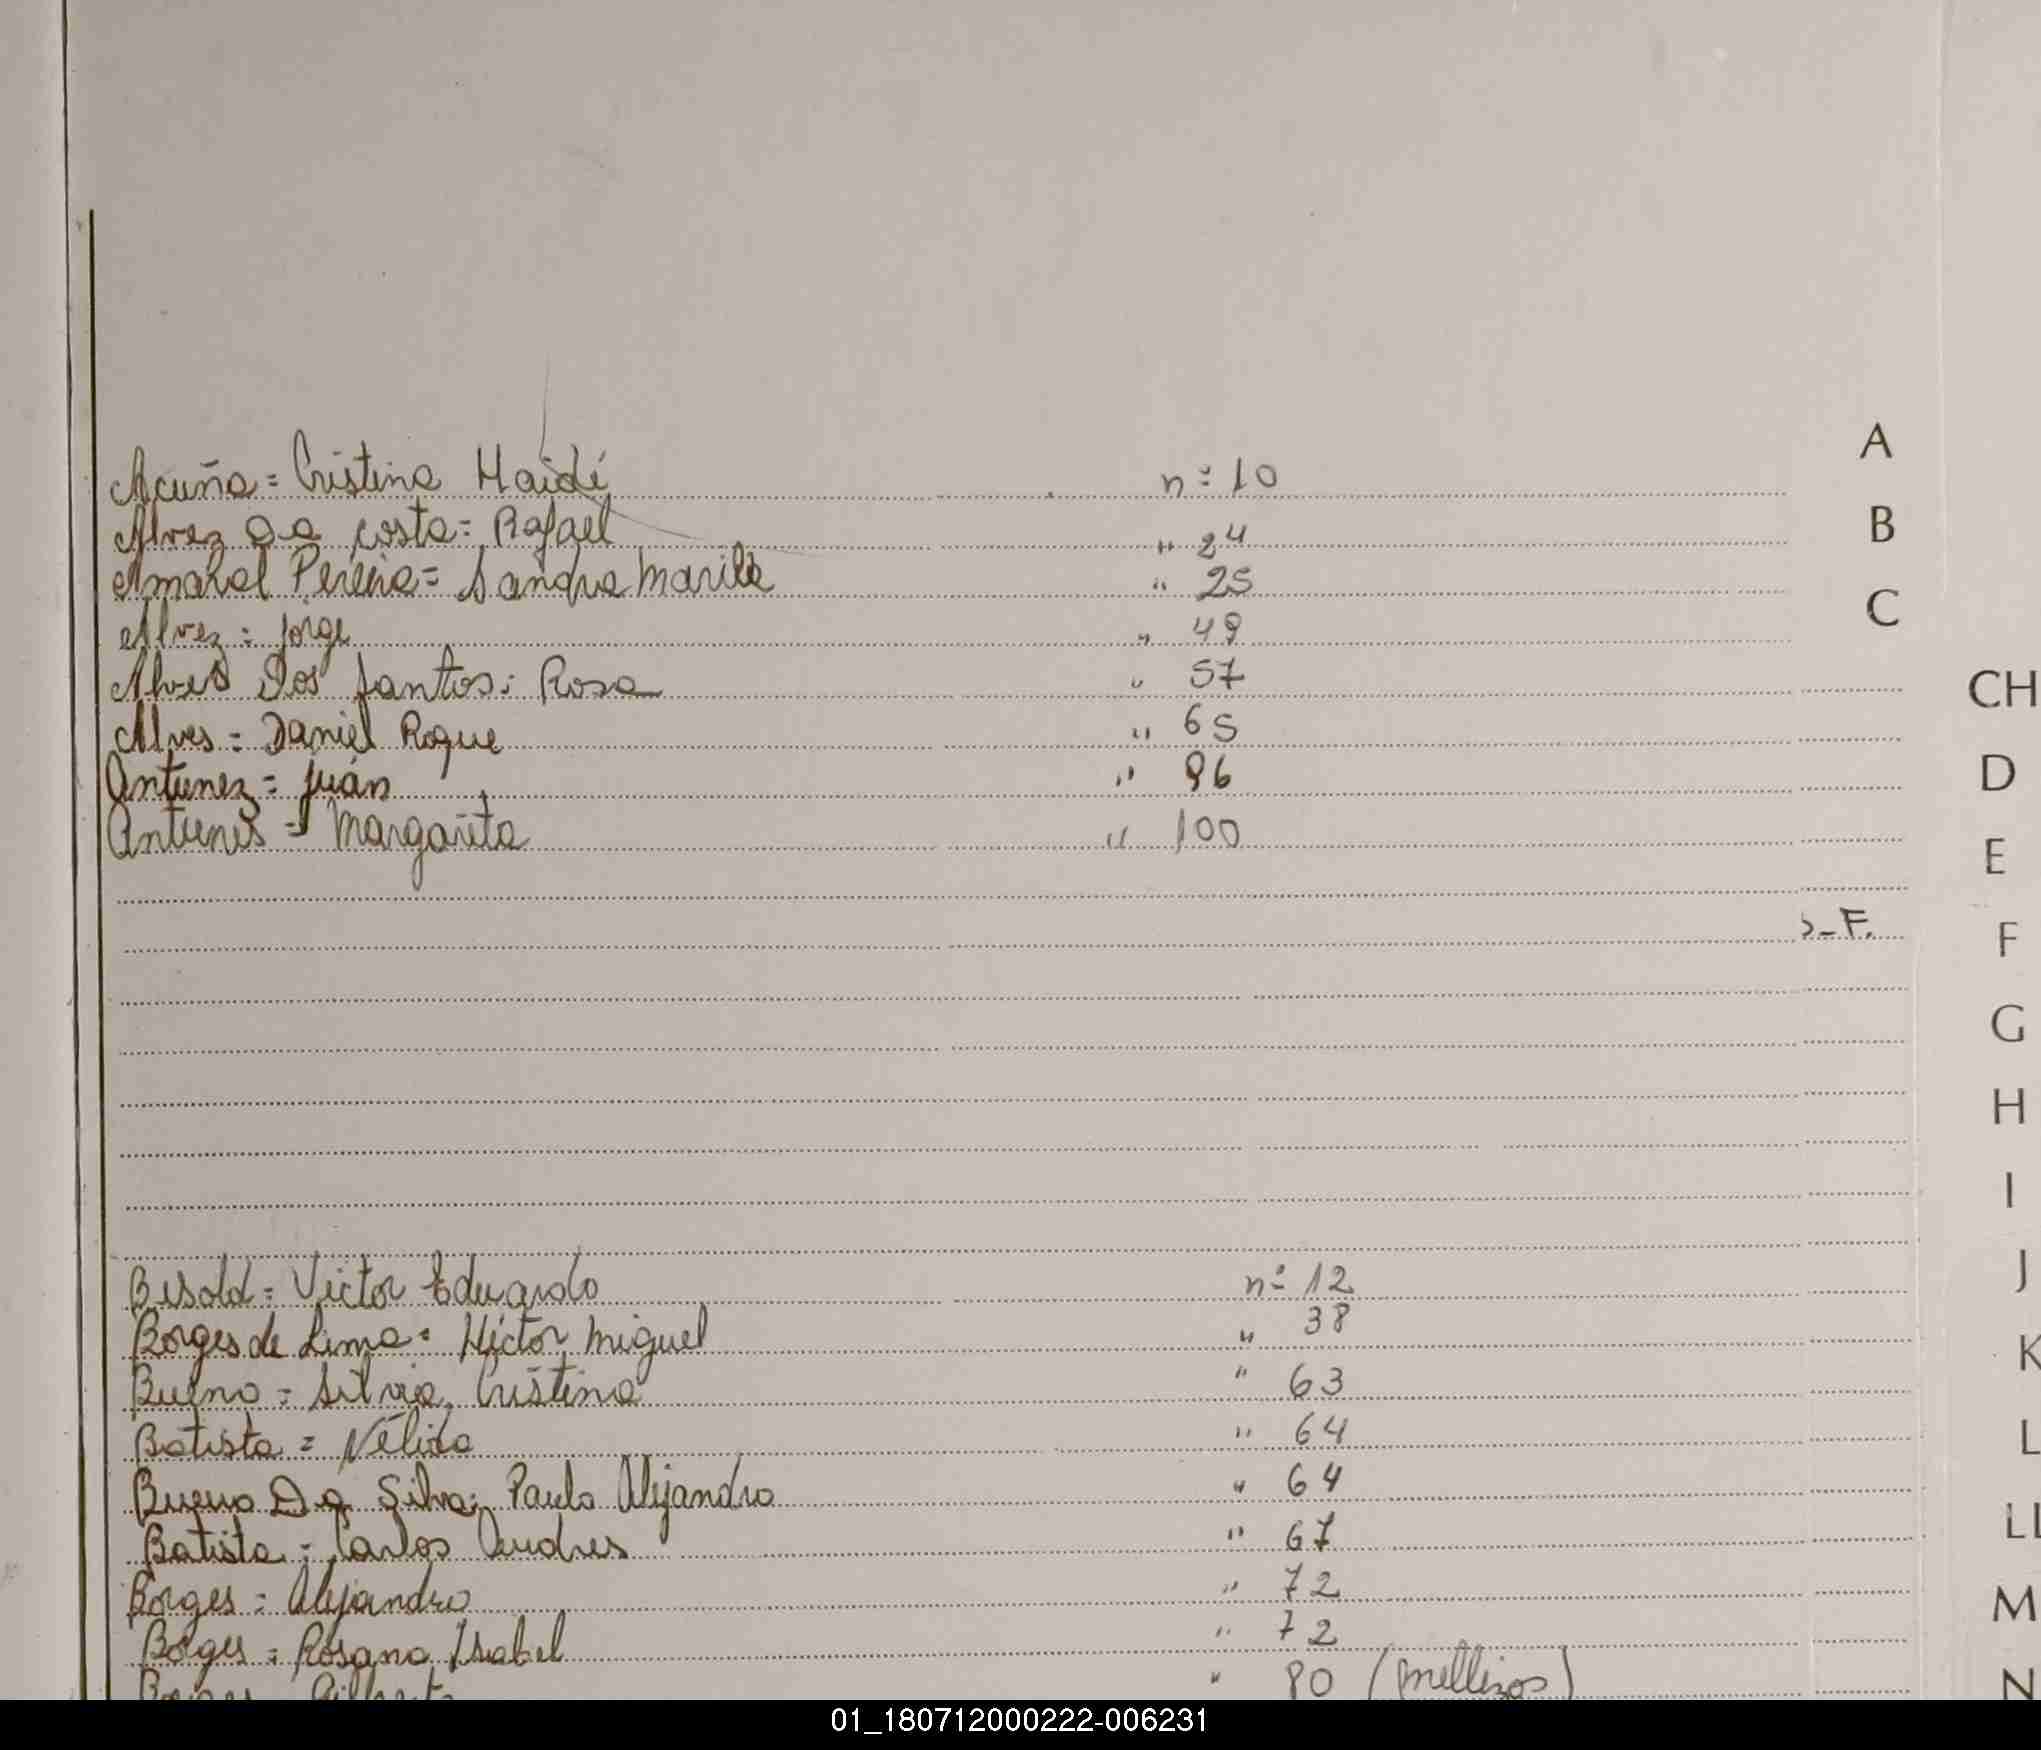 Acuña = Cristina Haidé n= 10
Alvez Da costa = Rafael " 24
Amaral Pereira = Sandra Marile " 25
Alvez = Jorge " 49
Alves Dos Santos: Rosa " 57
Alves = Daniel Roque " 65
Antunez = Juán " 96
Antunes = Margarita " 100
S-F.
Besold = Victor Eduardo n= 12
Borges de Lima = Héctor Miguel " 38
Bueno = Silvia Cristina " 63
Batista = Nélida " 64
Bueno Da Silva; Paulo Alejandro " 64
Batista = Carlos Andres " 67
Borges = Alejandro " 72
Borges = Rosana Isabel " 72
Borges Gilberto " 80 (mellizos)
A
B
C
CH
D
E
F
G
H
I
J
K
L
LL
M
N
01_180712000222-006231